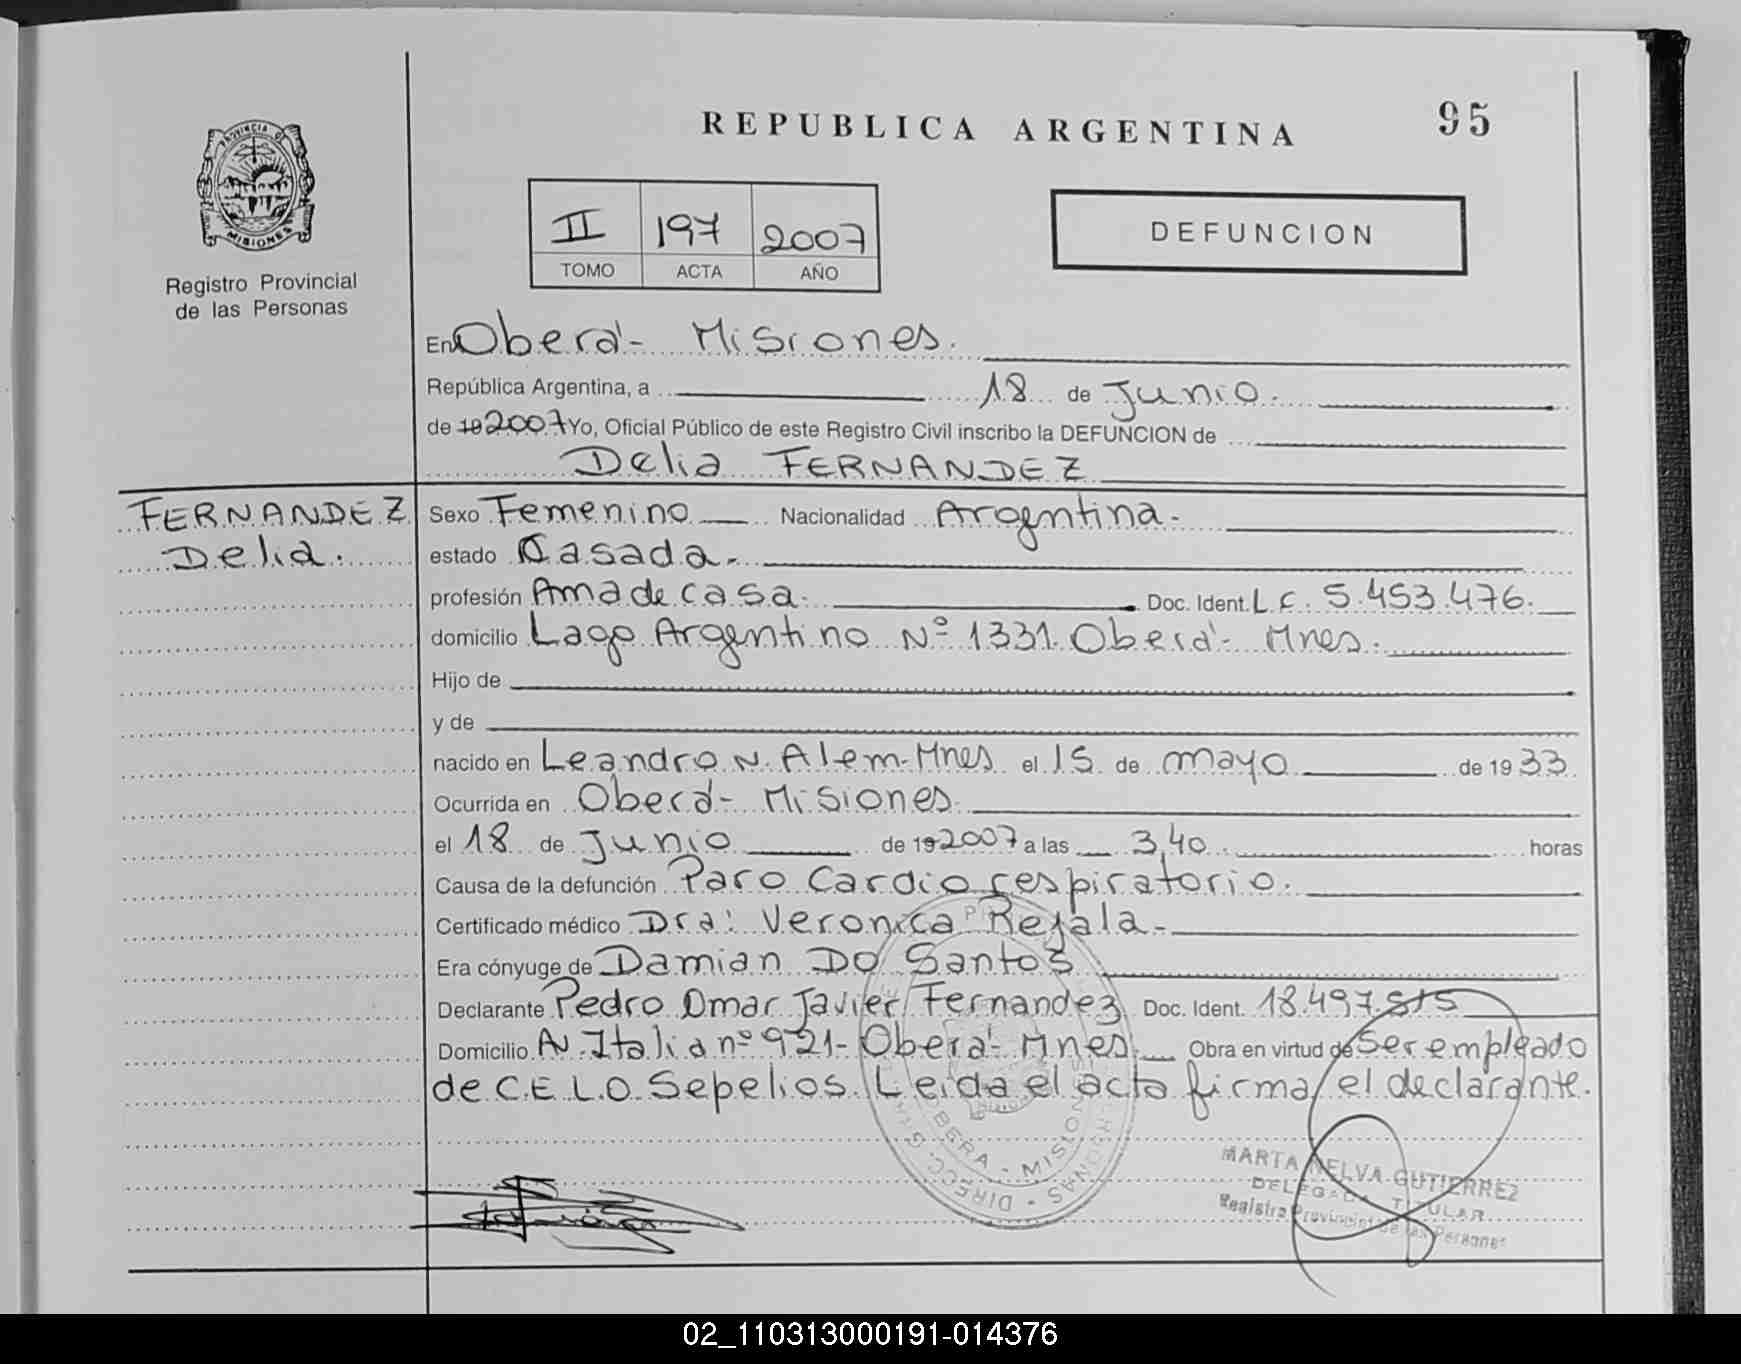 REPUBLICA ARGENTINA
95
PROVINCIA DE
MISIONES
Registro Provincial
de las Personas
II 197 2007
TOMO ACTA AÑO
DEFUNCION
En Oberá - Misiones.
República Argentina, a 18 de Junio.
de 19 2007 Yo, Oficial Público de este Registro Civil inscribo la DEFUNCION de
Delia FERNANDEZ
FERNANDEZ
Delia.
Sexo Femenino Nacionalidad Argentina.
estado Casada.
profesión Ama de casa. Doc. Ident. L.C. 5.453.476.
domicilio Lago Argentino Nº 1331. Oberá - Mnes.
Hijo de
y de
nacido en Leandro N. Alem - Mnes el 15 de mayo de 19 33
Ocurrida en Oberá - Misiones.
el 18 de Junio de 19 2007 a las 3,40 horas
Causa de la defunción Paro Cardio respiratorio.
Certificado médico Dra: Veronica Rejala.
Era cónyuge de Damian Do Santos
Declarante Pedro Omar Javier Fernandez Doc. Ident. 18.497.515
Domicilio Av. Italia nº 921 - Oberá - Mnes. Obra en virtud de Ser empleado
de C.E.L.O. Sepelios. Leida el acta firma el declarante.
BERA - MISION
DIRECC. G
MARTA NELVA GUTIERREZ
DELEGADA TITULAR
Registro Provincial de las Personas
02_110313000191-014376